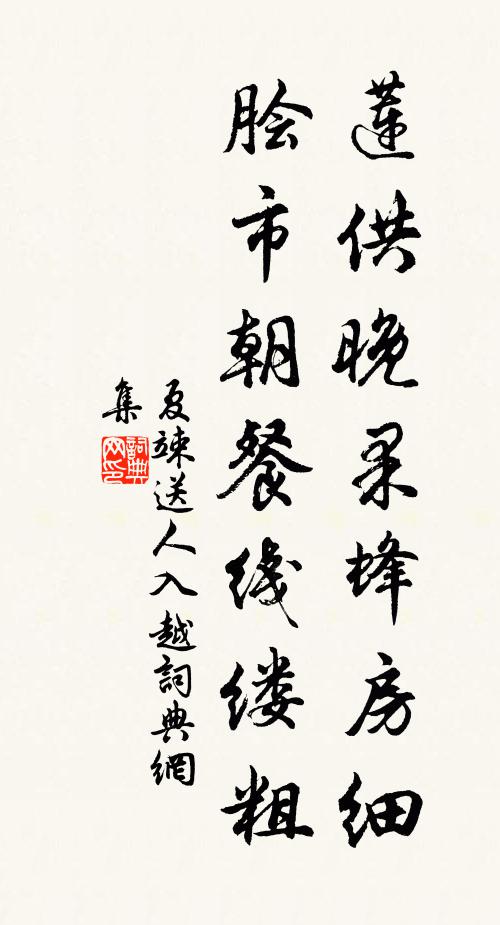 莲供晚采蜂房细
脍市朝餐线缕粗
夏竦送人入越詞典網
集
詞典網印